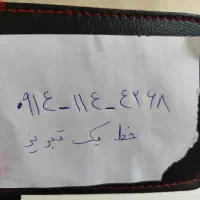 ۰۹۱٤-۱۱٤-٤۲۶۸
خط یک تبریز